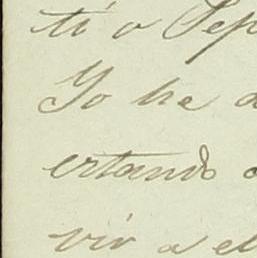 ti o Pep
Yo he d
ertando
vir a el